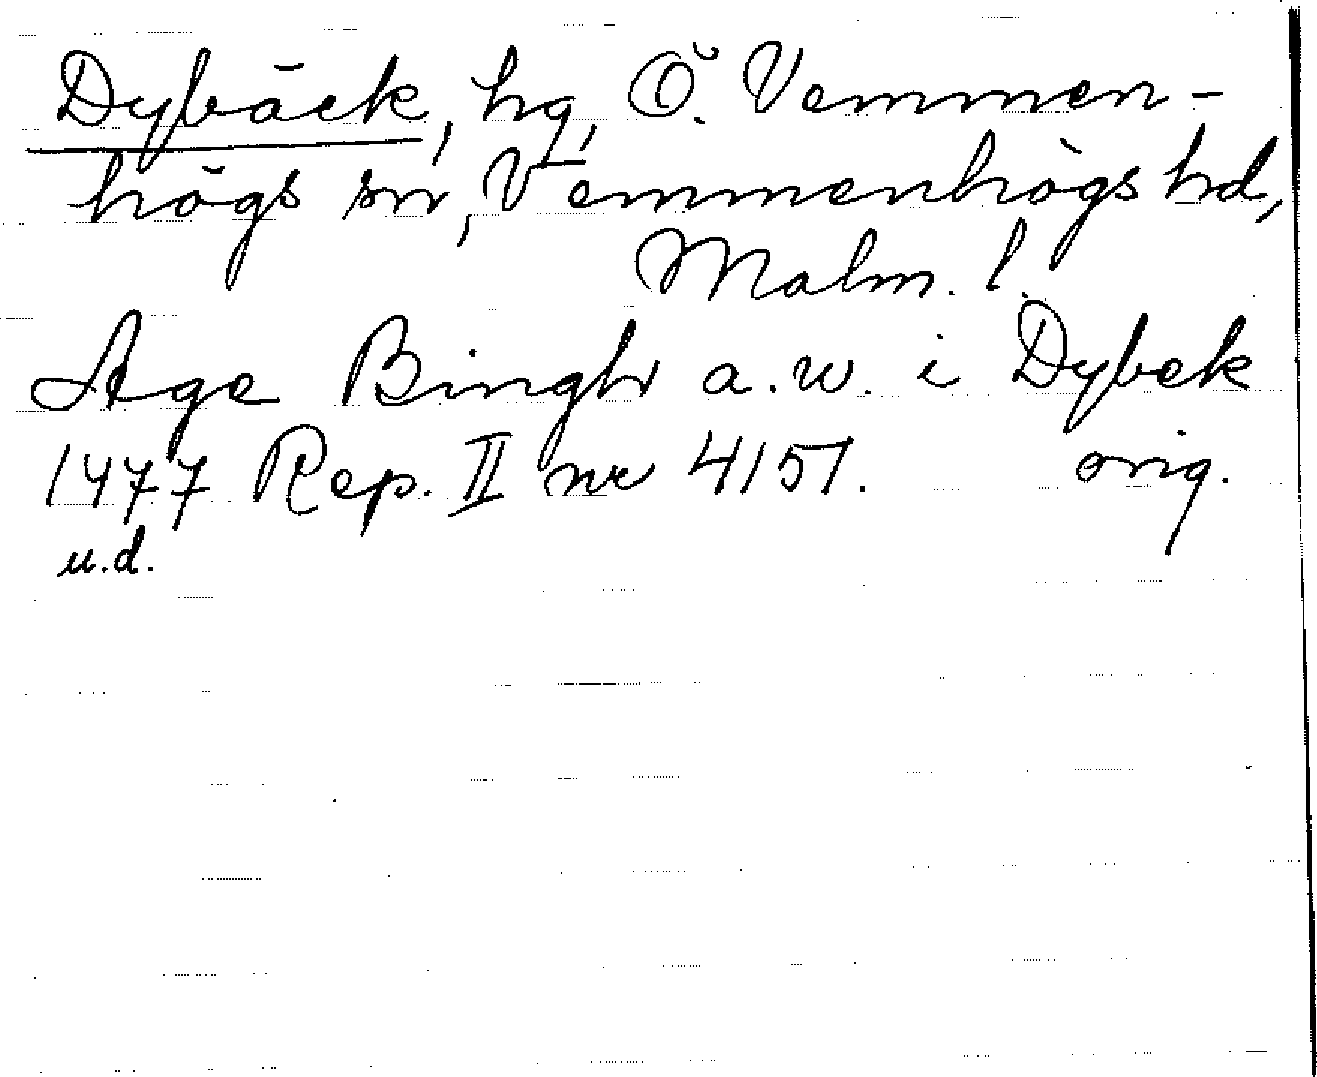 Dybäck, hg, Ö. Vemmen-
högs sn, Vemmenhögs hd,
Malm. l.
Age Bingh a.w. i Dybek
1477 Rep. II nr 4151. orig.
u.d.